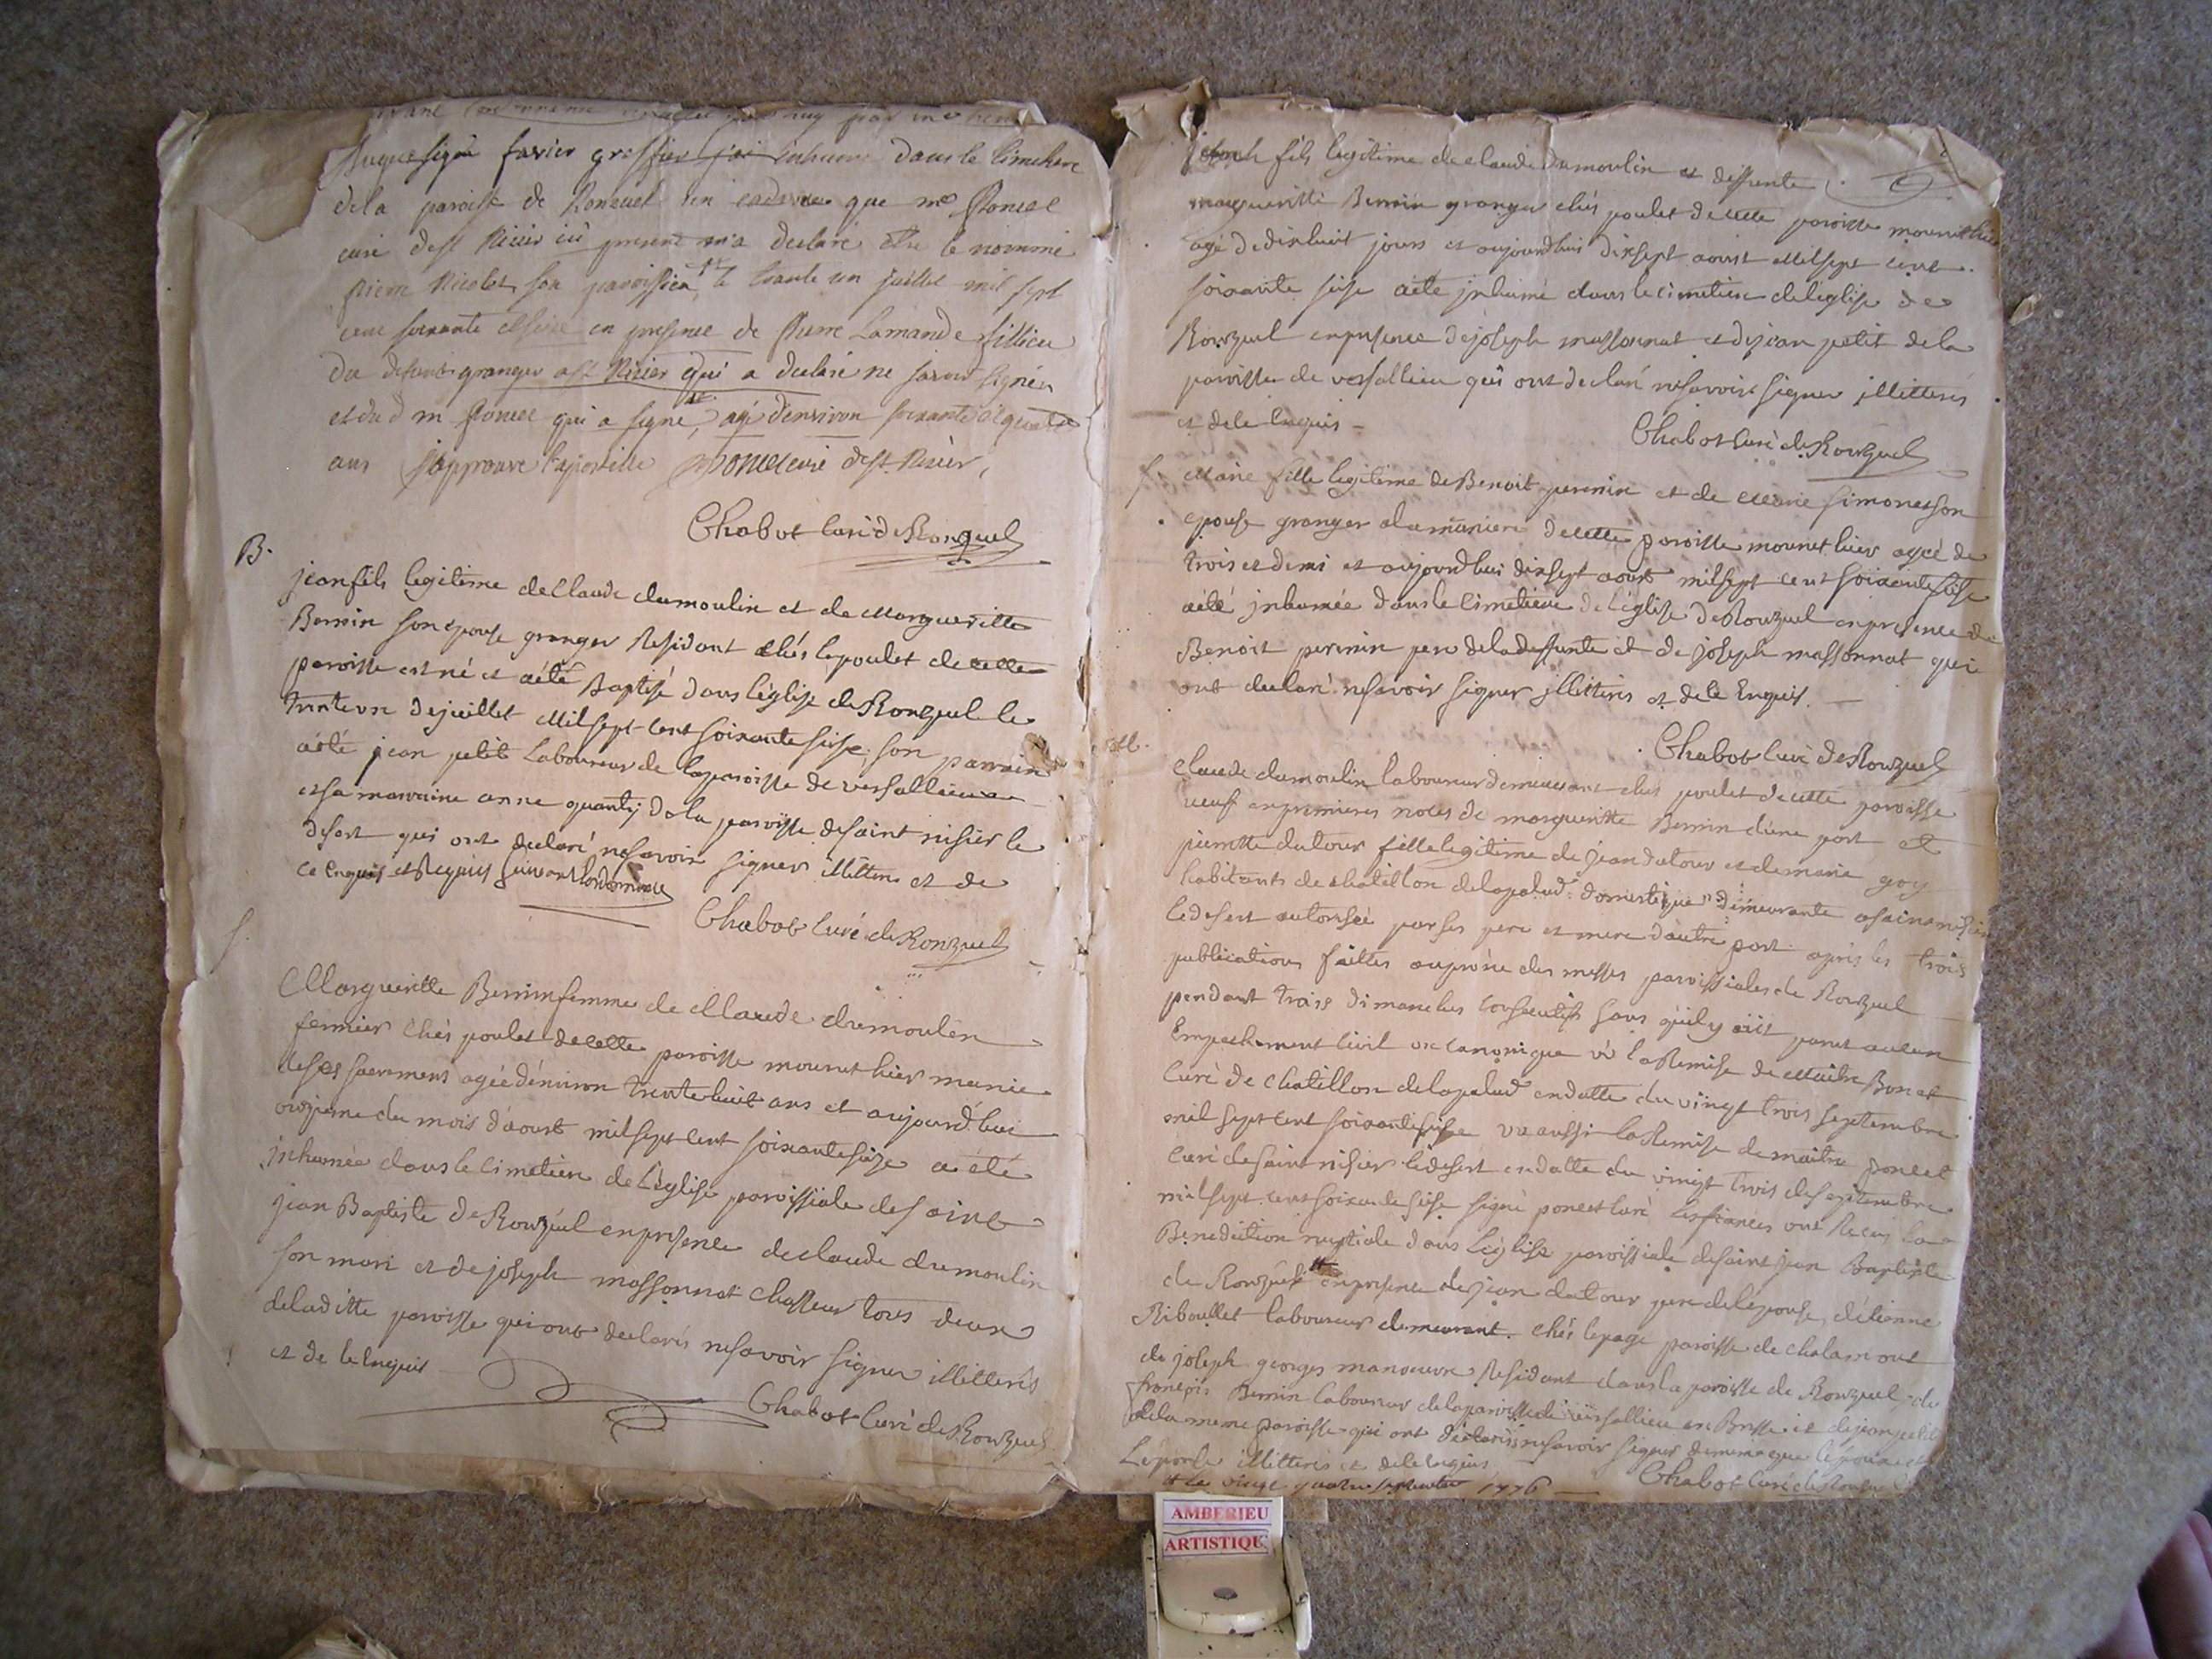 favier greffier j'ai inhumé dans le cimetiere
dela paroisse de Ronzuel un cadavre que mre Poncet
curé de st Nisier ici present m'a declaré être le nommé
pierre Nicolet son paroissien, le trante un juillet mil sept
cent soixante et seise en presence de Pierre Lamande fillieu
du defunt granger a st Nisier qui a declaré ne savoir signer
et du d m Poncet qui a signé, agé d'environ soixante et quatre
ans j'approuve l'apostille Poncet curé de st Nisier,
Chabot Curé de Ronzuel
B.
jean fils legitime de Claude dumoulin et de Margueritte
Bernin son epouse granger Residant chés lepoulet de cette
paroisse est né et aété Baptisé dans léglise de Ronzuel le
trente un dejuillet Milsept cent soixante seise, son parrain
aété jean petit Laboureur de la paroisse de versallieu
et sa marraine anne quanty dela paroisse desaint nisier le
desert qui ont declaré nesavoir signer illitteres et de
ce Enquis et Requis suivant lordonnance
Chabot Curé de Ronzuel
S.
Margueritte Bernin femme de Claude dumoulin
fermier chés poulet decette paroisse mourut hier munie
deses sacremens agée dénviron trentehuit ans et aujourd'hui
onzieme du mois d'aoust milsept cent soixanteseize a été
inhumée dans le cimetiere de l'église paroissiale de saint
jean Baptiste de Ronzuel enpresence declaude dumoulin
son mari et de joseph massonnat chasseur tous deux
deladitte paroisse qui ont declarés nesavoir signer illitterés
et de ce Enquis
Chabot Curé de Ronzuel
fils legitime de claude Dumoulin et deffunte
margueritte Bernin granger chés poulet decette paroisse mourut hier
agé dedixhuit jours et aujourdhui dixsept aoust Milsept cent
soixante seise aété inhumé dans le cimetiere deléglise de
Ronzuel enpresence dejoseph massonnat et dejean petit dela
paroisse de versallieu qui ont declaré nesavoir signer illitterés
et dece Enquis
Chabot Curé de Ronzuel
S.
Marie fille legitime de Benoit perenin et de Marie simonesson
epouse granger alamuniere decette paroisse mourut hier agé de
trois et demi et aujourdhui dixsept aoust milsept cent soixante seise
aété inhumée dans le cimetiere deléglise de Ronzuel enpresence de
Benoit perenin pere dela deffunte et de joseph massonnat qui
ont declaré nesavoir signer illitterés et dece Enquis.
Chabot Curé de Ronzuel
M.
Claude dumoulin laboureur demeurant chés poulet decette paroisse
veuf enpremieres noces de margueritte Bernin dúne part et
pierrette dutour fille legitime de jean dutour et demarie goy
habitants de chatillon delapalud domestique demeurante asaint nisier
ledesert autorisée par ses pere et mere dautre part aprés les trois
publications faittes auprône des messes paroissiales de Ronzuel
pendant trois dimanches consecutifs sans quily aiit parut aucun
Empechement civil ou canonique vû la Remise de Maitre Bonet
curé de chatillon delapalud endatte du vingt trois septembre
mil sept cent soixante seise vu aussi la Remise demaitre poncet
curé desaint nisier ledesert endatte du vingt trois deseptembre
milsept cent soixante seise signé poncet curé les fiancés ont Recuy la
Benediction nuptiale dans léglise paroissiale desaint jean Baptiste
de Ronzuel enpresence dejean dutour pere delépouse, détienne
Riboullet laboureur demeurant chés lepage paroisse de chalamont
de joseph georges manoeuvre Residant dans la paroisse de Ronzuel, de
françois Bernin laboureur dela paroisse de versallieu en Bresse et dejean petit
dela meme paroisse qui ont declarés nesavoir signer dememe que lépoux et
Lépouse illitterés et dece Enquis
Chabot Curé de Ronzuel
# le vingt quatre septembre 1776
AMBERIEU
ARTISTIQU